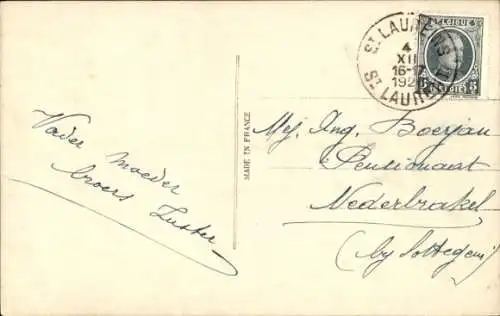 Vader moeder
broers Zuster
MADE IN FRANCE
ST LAURENS
4
XII
16-17
192
ST LAURE
BELGIQUE
5
BELGIE
5
Mej. Ing. Boerjan
Pensionaat
Nederbrakel
(by Sottegem)